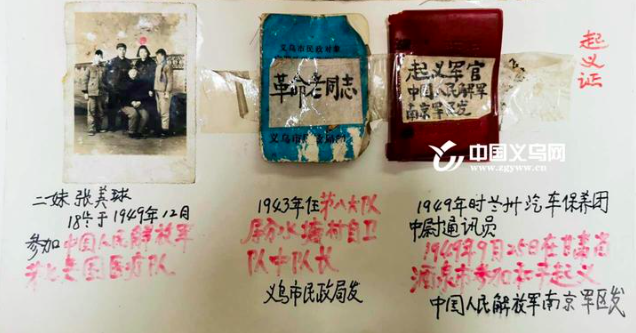 起义证
义乌市民政对象
革命老同志
义乌市民政局
起义军官
中国人民解放军
南京军区发
中国义乌网
www.zgyww.cn
二妹 张美球
18岁于1949年12月
参加中国人民解放军
医疗队
1943年任第八大队
村自卫
队中队长
义乌市民政局发
1949年时兰州汽车保养团
中尉通讯员
1949年9月25日在甘肃省
酒泉市参加和平起义
中国人民解放军南京军区发